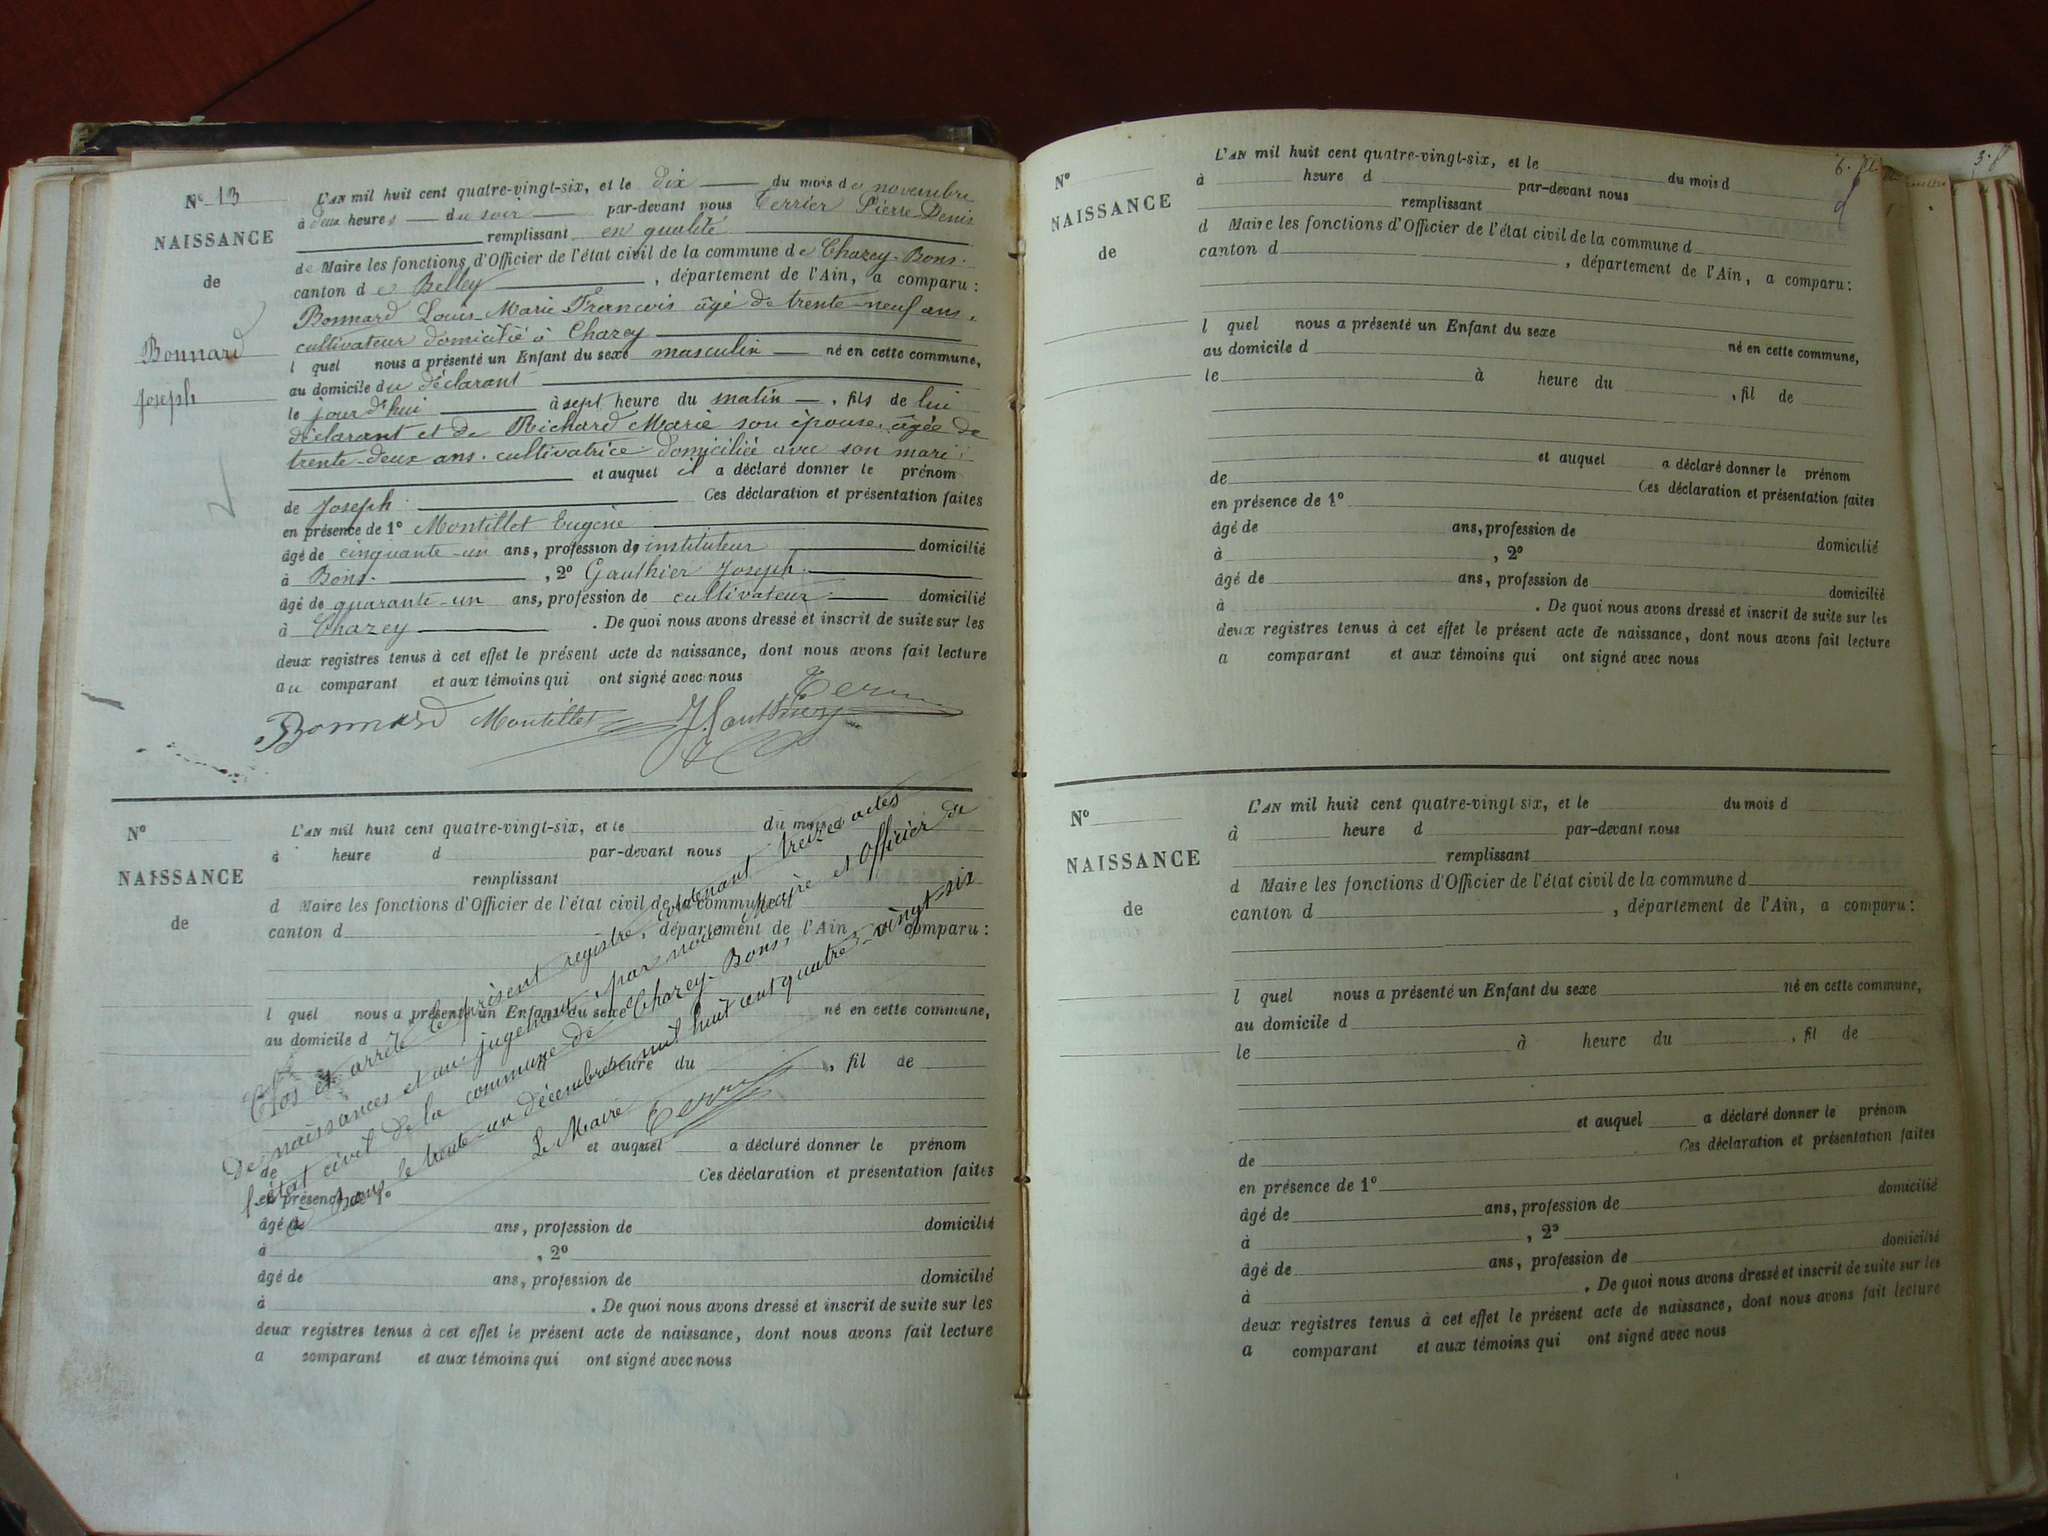 N° 13
NAISSANCE
de
Bonnard
Joseph
L'AN mil huit cent quatre-vingt-six, et le dix du mois de novembre
à deux heures du soir par-devant nous Terrier Pierre Denis
remplissant en qualité
de Maire les fonctions d'Officier de l'état civil de la commune de Chazey-Bons.
canton de Belley, département de l'Ain, a comparu :
Bonnard Louis-Marie François âgé de trente-neuf ans,
cultivateur domicilié à Chazey
l quel nous a présenté un Enfant du sexe masculin né en cette commune,
au domicile du déclarant
le jour d'hui à sept heure du matin, fils de lui
déclarant et de Richard Marie son épouse, âgée de
trente-deux ans. cultivatrice domiciliée avec son mari ;
et auquel il a déclaré donner le prénom
de Joseph. Ces déclaration et présentation faites
en présence de 1° Montillet Eugène
âgé de cinquante-un ans, profession d'instituteur domicilié
à Bons. , 2° Gauthier Joseph.
âgé de quarante-un ans, profession de cultivateur domicilié
à Chazey . De quoi nous avons dressé et inscrit de suite sur les
deux registres tenus à cet effet le présent acte de naissance, dont nous avons fait lecture
au comparant et aux témoins qui ont signé avec nous
Bonnard Montillet J. Gauthier
N°
NAISSANCE
de
L'AN mil huit cent quatre-vingt-six, et le du mois d
à heure d par-devant nous
remplissant
d Maire les fonctions d'Officier de l'état civil de la commune d
canton d , département de l'Ain, a comparu :
l quel nous a présenté un Enfant du sexe né en cette commune,
au domicile d
heure du , fil de
et auquel a déclaré donner le prénom
de Ces déclaration et présentation faites
en présence de 1°
âgé de ans, profession de domicilié
à , 2°
âgé de ans, profession de domicilié
à . De quoi nous avons dressé et inscrit de suite sur les
deux registres tenus à cet effet le présent acte de naissance, dont nous avons fait lecture
a comparant et aux témoins qui ont signé avec nous
Clos et arrêté le présent registre contenant treize actes
de naissances et un jugement, par nous Maire et Officier de
l'état civil de la commune de Chazey-Bons,
à Bons le trente-un décembre mil huit cent quatre-vingt-six
Le Maire
N°
NAISSANCE
de
L'AN mil huit cent quatre-vingt-six, et le du mois d
à heure d par-devant nous
remplissant
d Maire les fonctions d'Officier de l'état civil de la commune d
canton d , département de l'Ain, a comparu :
l quel nous a présenté un Enfant du sexe né en cette commune,
au domicile d
le à heure du , fil de
et auquel a déclaré donner le prénom
de Ces déclaration et présentation faites
en présence de 1°
âgé de ans, profession de domicilié
à , 2°
âgé de ans, profession de domicilié
à . De quoi nous avons dressé et inscrit de suite sur les
deux registres tenus à cet effet le présent acte de naissance, dont nous avons fait lecture
a comparant et aux témoins qui ont signé avec nous
N°
NAISSANCE
de
L'AN mil huit cent quatre-vingt-six, et le du mois d
à heure d par-devant nous
remplissant
d Maire les fonctions d'Officier de l'état civil de la commune d
canton d , département de l'Ain, a comparu :
l quel nous a présenté un Enfant du sexe né en cette commune,
au domicile d
le à heure du , fil de
et auquel a déclaré donner le prénom
de Ces déclaration et présentation faites
en présence de 1°
âgé de ans, profession de domicilié
à , 2°
âgé de ans, profession de domicilié
à . De quoi nous avons dressé et inscrit de suite sur les
deux registres tenus à cet effet le présent acte de naissance, dont nous avons fait lecture
a comparant et aux témoins qui ont signé avec nous